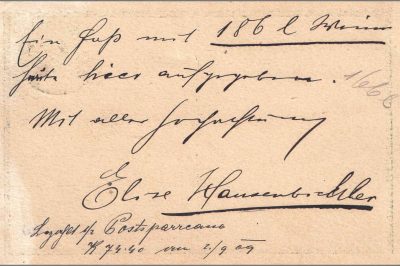 Ein Faß mit 186 l Wein
heute hier aufgegeben.
1668
Mit aller Hochachtung
Elise Hausenbichler
Postsparcassa
K 74.40 am 2/9 09